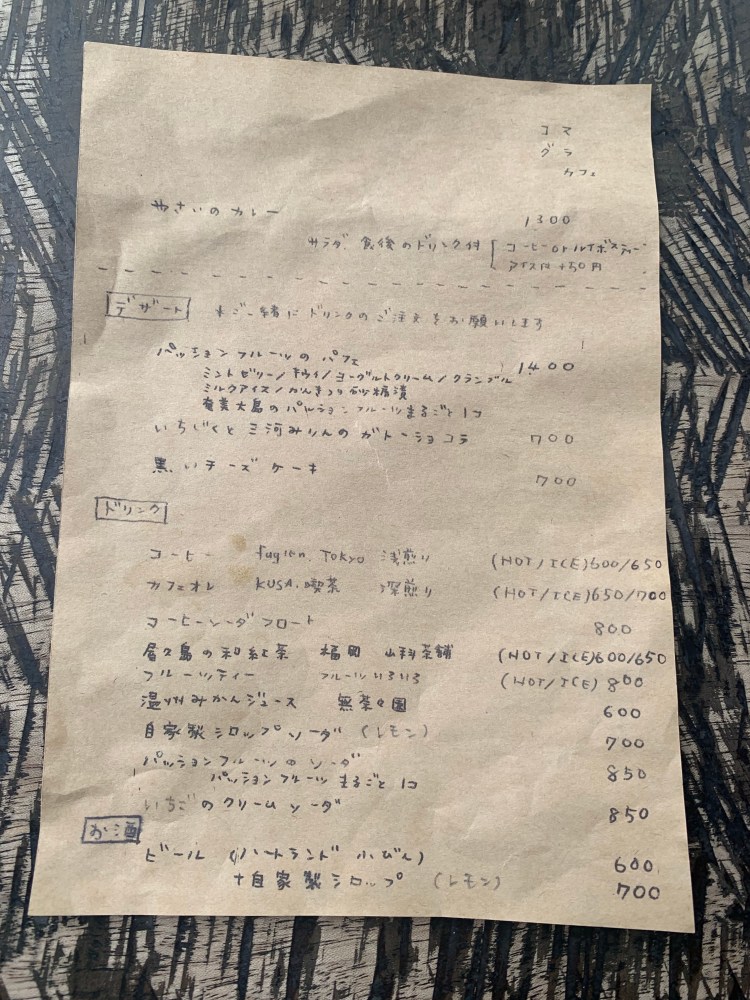 コマ
グラ
カフェ
やさいのカレー 1300
サラダ、食後のドリンク付 [コーヒー or ルイボスティー
アイスは +50円
デザート *ご一緒にドリンクのご注文をお願いします
パッションフルーツのパフェ 1400
ミントゼリー/キウイ/ヨーグルトクリーム/クランブル
ミルクアイス/かんきつの砂糖漬
奄美大島のパッションフルーツまるごと1コ
いちじくと三河みりんのガトーショコラ 700
黒いチーズケーキ 700
ドリンク
コーヒー fuglen. TOKYO 浅煎り (HOT/ICE)600/650
カフェオレ KUSA.喫茶 深煎り (HOT/ICE)650/700
コーヒーソーダフロート 800
屋久島の和紅茶 福岡 山科茶舗 (HOT/ICE)600/650
フルーツティー フルーツいろいろ (HOT/ICE) 800
温州みかんジュース 無茶々園 600
自家製シロップソーダ (レモン) 700
パッションフルーツのソーダ
パッションフルーツまるごと1コ 850
いちごのクリームソーダ 850
お酒
ビール (ハートランド小びん) 600
+自家製シロップ (レモン) 700